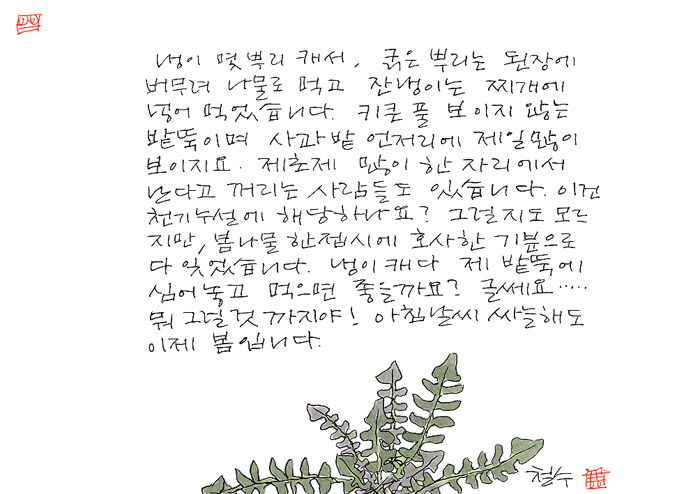 냉이 몇 뿌리 캐서, 굵은 뿌리는 된장에
버무려 나물로 먹고 잔냉이는 찌개에
넣어 먹었습니다. 키큰 풀 보이지 않는
밭뚝이며 사과밭 언저리에 제일 많이
보이지요. 제초제 많이 한 자리에서
난다고 꺼리는 사람들도 있습니다. 이건
천기누설에 해당하나요? 그럴지도 모르
지만, 봄나물 한접시에 호사한 기분으로
다 잊었습니다. 냉이 캐다 제 밭뚝에
심어놓고 먹으면 좋을까요? 글쎄요.....
뭐 그럴것 까지야! 아침날씨 싸늘해도
이제 봄입니다.
철수